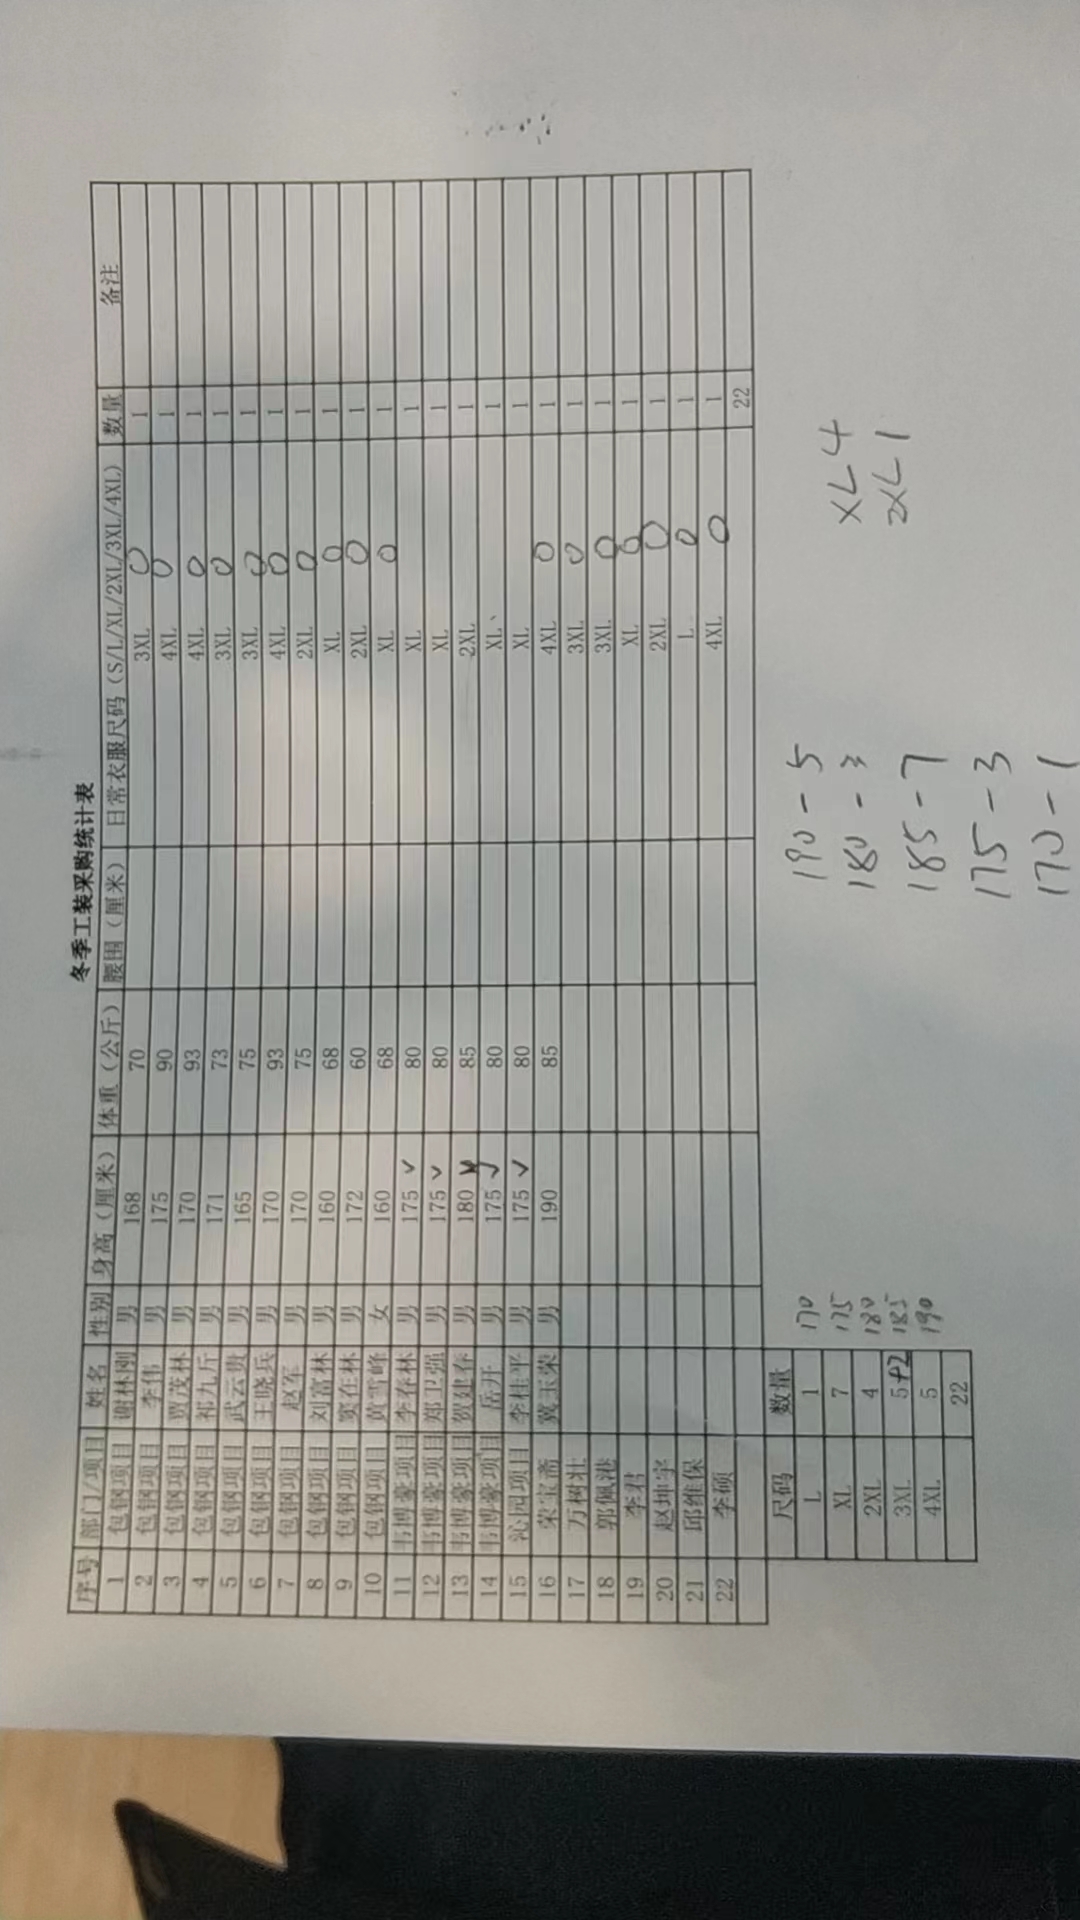 冬季工装采购统计表
序号 部门/项目 姓名 性别 身高（厘米） 体重（公斤） 腰围（厘米） 日常衣服尺码（S/L/XL/2XL/3XL/4XL） 数量 备注
1 包钢项目 谢林刚 男 168 70 3XL 1
2 包钢项目 李伟 男 175 90 4XL 1
3 包钢项目 贾茂林 男 170 93 4XL 1
4 包钢项目 祁九斤 男 171 73 3XL 1
5 包钢项目 武云贵 男 165 75 3XL 1
6 包钢项目 王晓兵 男 170 93 4XL 1
7 包钢项目 赵军 男 170 75 2XL 1
8 包钢项目 刘富林 男 160 68 XL 1
9 包钢项目 窦在林 男 172 60 2XL 1
10 包钢项目 黄雪峰 女 160 68 XL 1
11 韦博豪项目 李春林 男 175 80 XL 1
12 韦博豪项目 郑卫强 男 175 80 XL 1
13 韦博豪项目 贺建春 男 180 85 2XL 1
14 韦博豪项目 岳开 男 175 80 XL 1
15 沁园项目 李桂平 男 175 80 XL 1
16 荣宝斋 冀玉荣 男 190 85 4XL 1
17 万树壮 3XL 1
18 郭佩港 3XL 1
19 李君 XL 1
20 赵坤宇 2XL 1
21 邱维保 L 1
22 李硕 4XL 1
22
尺码 数量
L 1 170
XL 7 175
2XL 4 180
3XL 5+2 185
4XL 5 190
22
190-5
180-3
185-7
175-3
170-1
XL4
2XL1